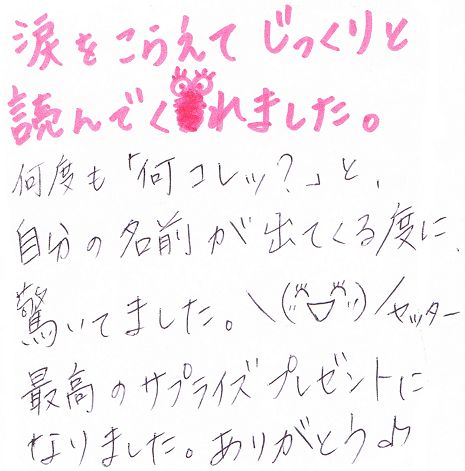 涙をこらえてじっくりと
読んでくれました。
何度も「何コレッ？」と、
自分の名前が出てくる度に、
驚いてました。＼(^▽^)／ヤッター
最高のサプライズプレゼントに
なりました。ありがとう♪